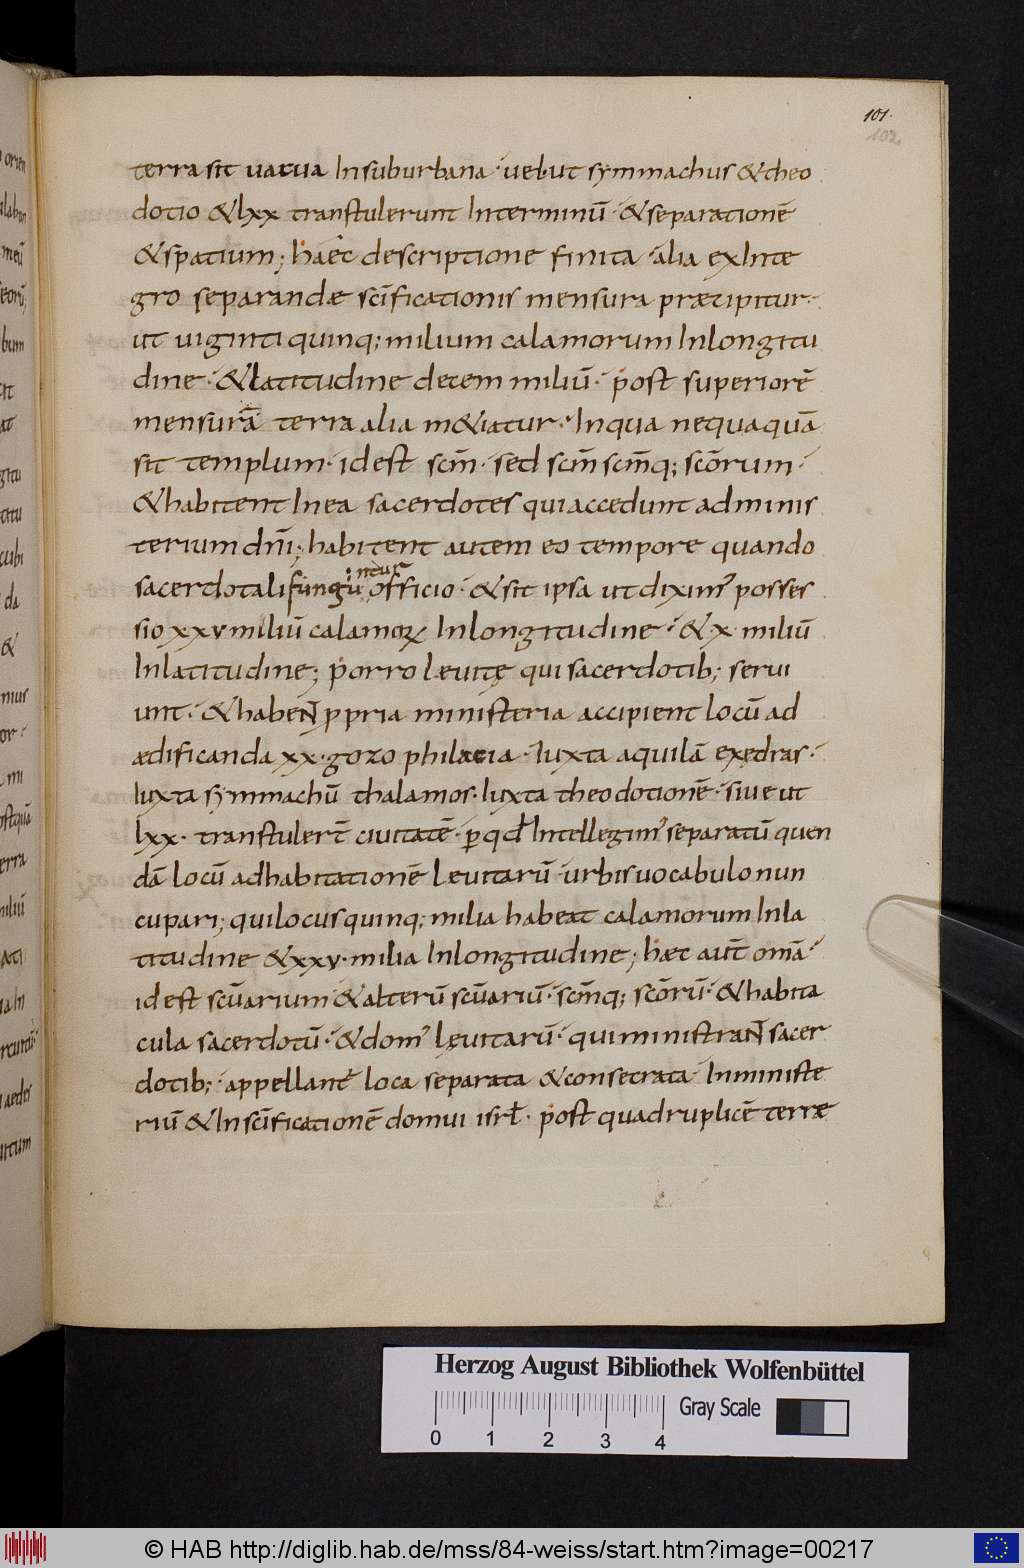 101.
102
terra sit uacua Insuburbana · uel ut symmachus & theo
dotio & lxx transtulerunt Interminū · & separationē
& spatium; haec descriptione finita · alia exInte
gro separandae scīficationis mensura praecipitur ·
ut uiginti quinq; milium calamorum Inlongitu
dine · & latitudine decem miliū · post superiorē
mensurā terra alia m&iatur · Inqua nequaquā
sit templum · id est scm̄ · sed scm̄ scm̄q; scōrum ·
& habitent Inea sacerdotes qui accedunt ad minis
terium dn̄i; habitent autem eo tempore quando
ntur
sacerdotali fungū officio · & sit ipsa ut dixim' posses
sio xxv miliū calamoꝝ Inlongitudine · & x miliū
Inlatitudine; porro leuitę qui sacerdotib; serui
unt · & haben̄ ꝓpria ministeria accipient locū ad
aedificanda xx · gozo philacia · Iuxta aquilā exedras ·
Iuxta symmachū thalamos · Iuxta theodotionē · siue ut
lxx · transtuler̄ ciuitatē · ꝑ qd̄ Intellegim' separatū quen
dā locū ad habitationē leuitarū · urbis uocabulo nun
cupari; qui locus quinq; milia habeat calamorum Inla
titudine & xxv · milia Inlongitudine; haec aut̄ omā ·
id est scūarium & alterū scūariū · scm̄q; scōrū · & habita
cula sacerdotū · & dom' lęuitarū · qui ministran̄ sacer
dotib; · appellant' loca separata & consecrata Inministe
riū & Inscīficationē domui isrł · post quadruplicē terrae
Herzog August Bibliothek Wolfenbüttel
Gray Scale
0 1 2 3 4
© HAB http://diglib.hab.de/mss/84-weiss/start.htm?image=00217